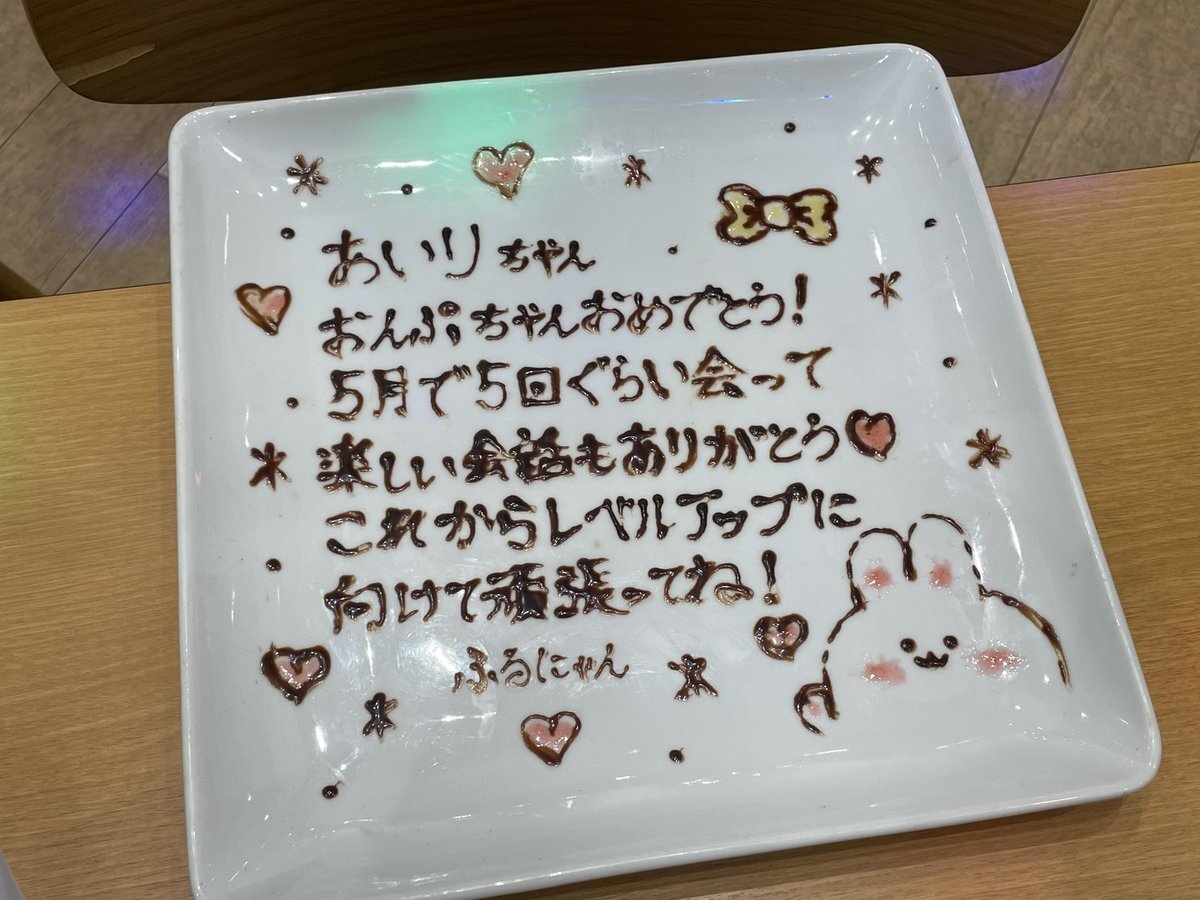 あいりちゃん
おんぷちゃんおめでとう！
5月で5回ぐらい会って
楽しい会話もありがとう
これからレベルアップに
向けて頑張ってね！
ふるにゃん